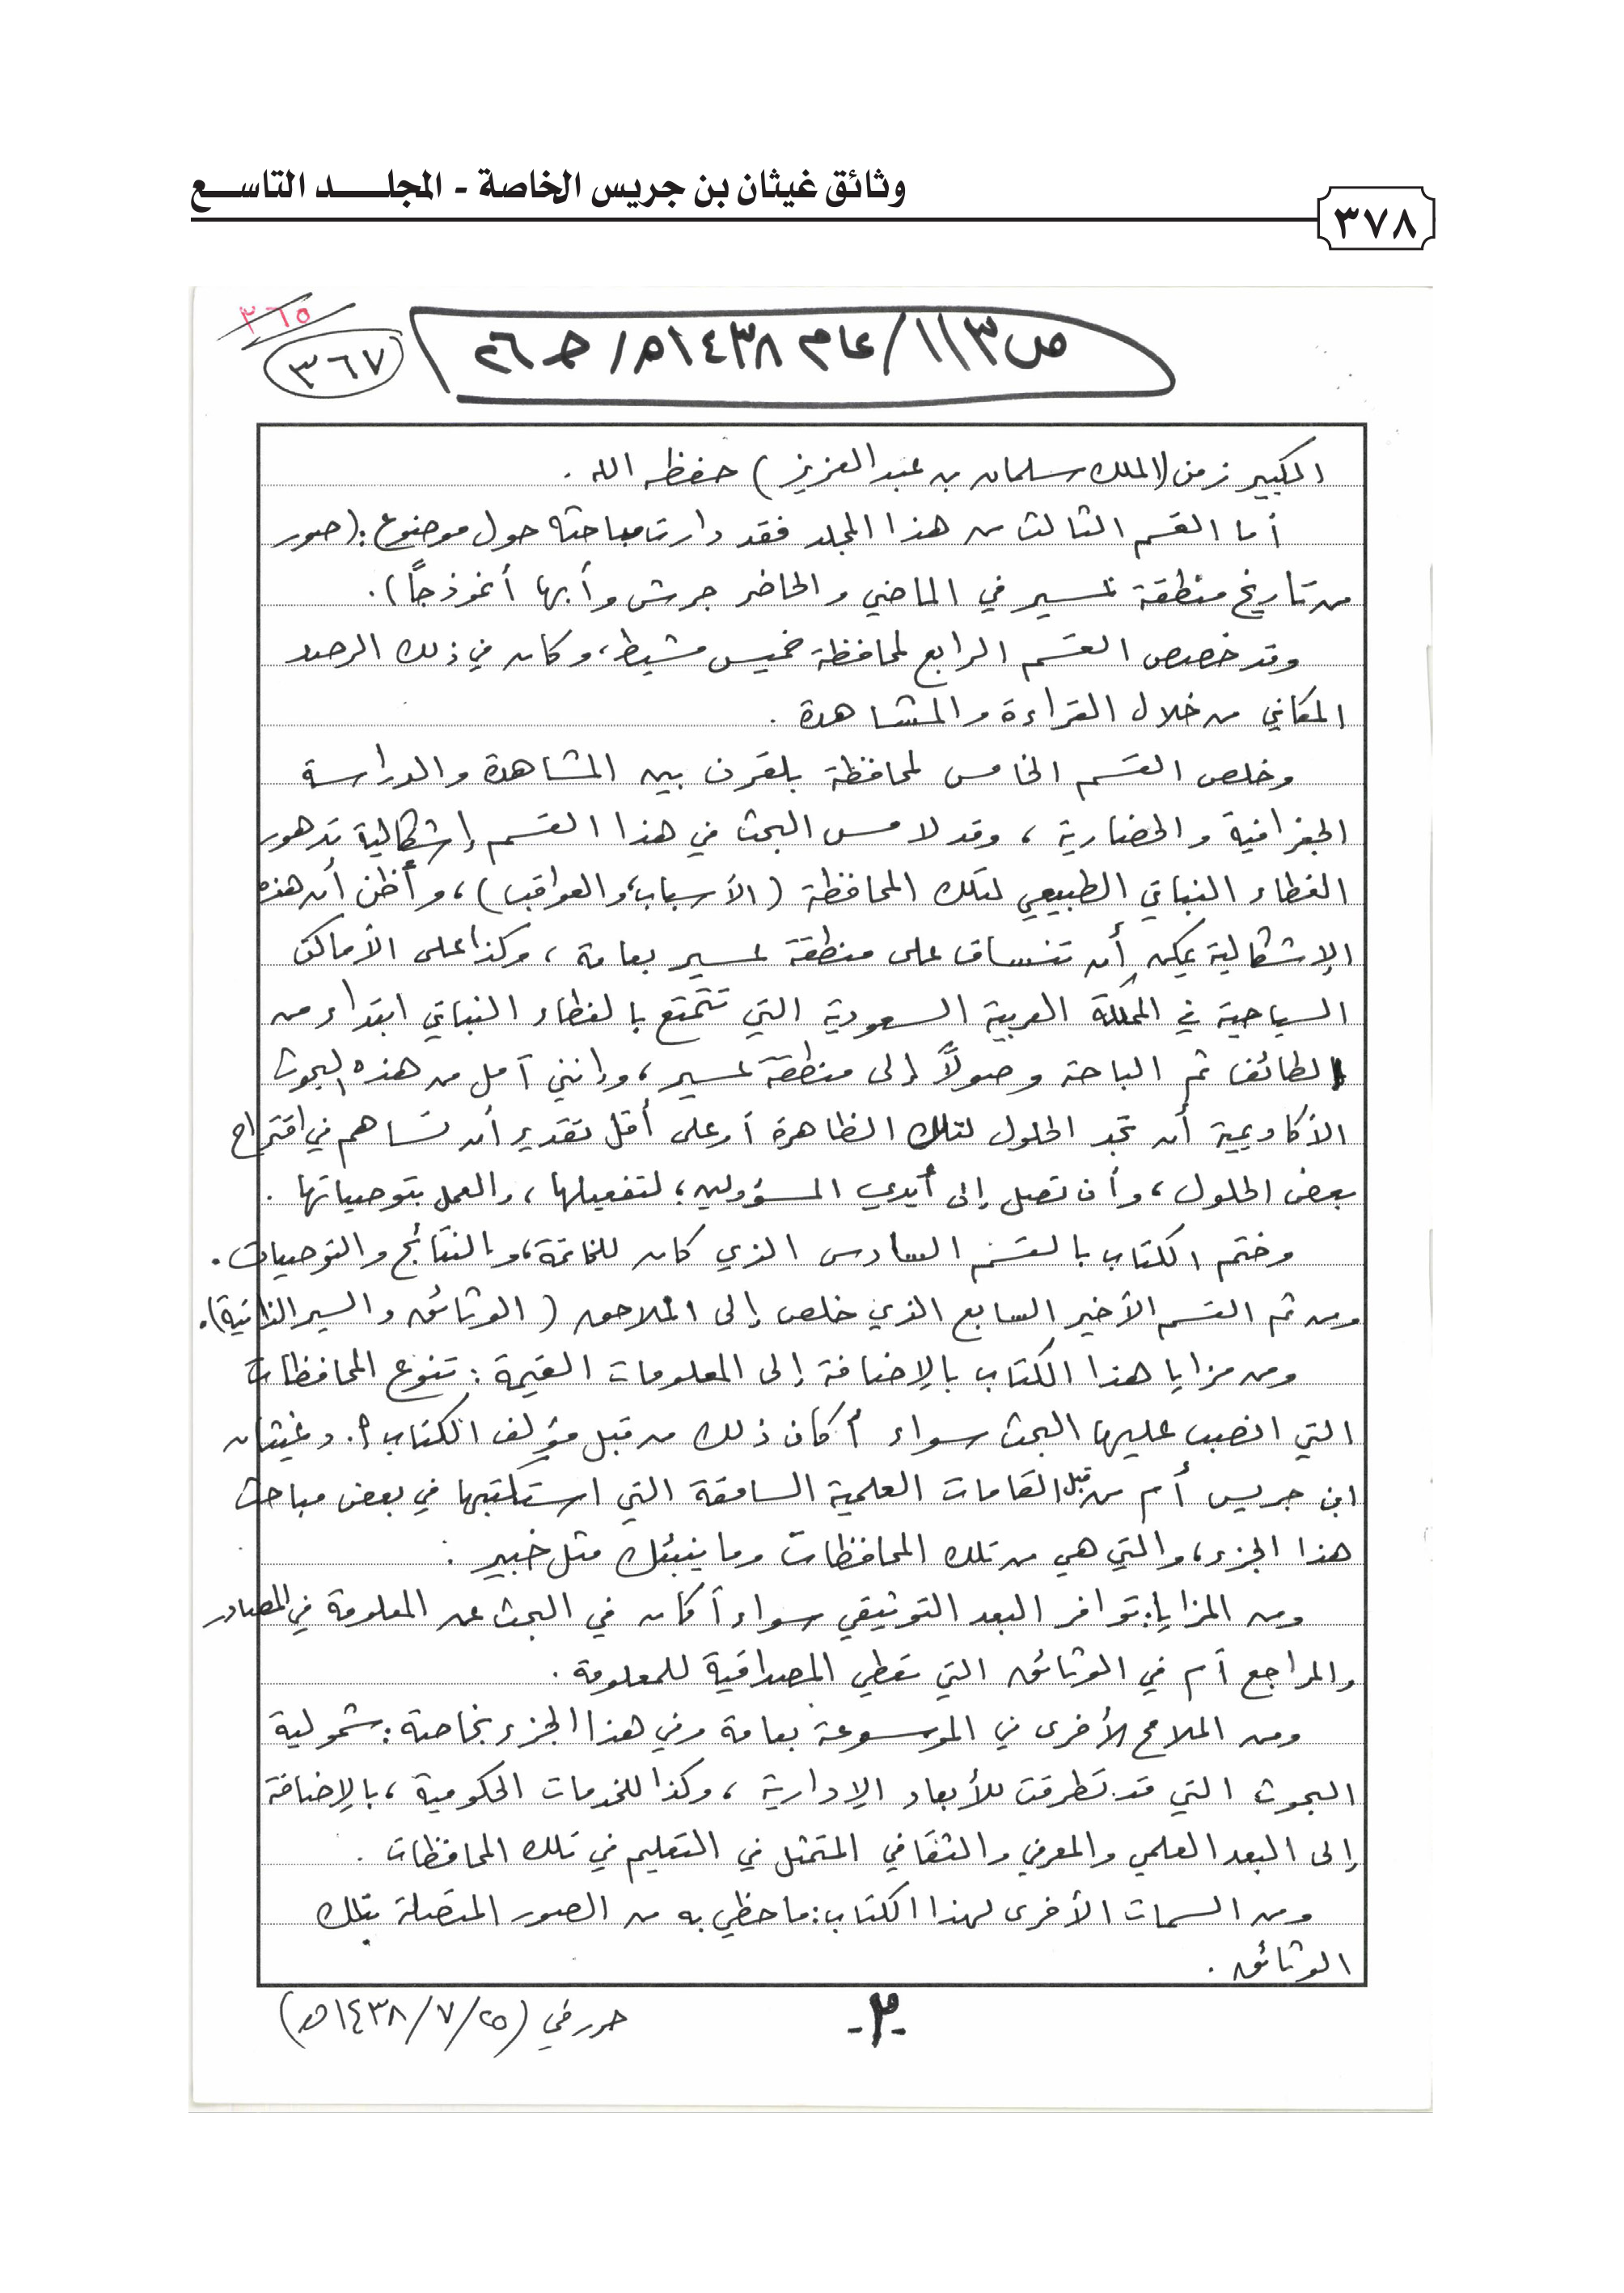 وثائق غيثان بن جريس الخاصة - المجلـــد التاســـع
٣٧٨
٣٦٥
٣٦٧
ص ١١٣/ عام ١٤٣٨هـ/ حـ ٢٦
الكبير زمن (الملك سلمان بن عبدالعزيز) حفظه الله .
أما القسم الثالث من هذا المجلد فقد دارت مباحثه حول موضوع: (صور
من تاريخ منطقة عسير في الماضي والحاضر جرش وأبها أنموذجاً).
وقد خصص القسم الرابع لمحافظة خميس مشيط، وكان في ذلك الرصد
المكاني من خلال القراءة والمشاهدة .
وخلص القسم الخامس لمحافظة بلقرن بين المشاهدة والدراسة
الجغرافية والحضارية ، وقد لامس البحث في هذا القسم إشكالية تدهور
الغطاء النباتي الطبيعي لتلك المحافظة (الأسباب، والعواقب)، وأظن أن هذه
الإشكالية يمكن أن تنساق على منطقة عسير بعامة ، وكذا على الأماكن
السياحية في المملكة العربية السعودية التي تتمتع بالغطاء النباتي ابتداء من
الطائف ثم الباحة وصولاً إلى منطقة عسير، وإنني آمل من هذه البحوث
الأكاديمية أن تجد الحلول لتلك الظاهرة أو على أقل تقدير أن تساهم في اقتراح
بعض الحلول ، وأن تصل إلى أيدي المسؤولين؛ لتفعيلها، والعمل بتوصياتها .
وختم الكتاب بالقسم السادس الذي كان للخاتمة، والنتائج والتوصيات .
ومن ثم القسم الأخير السابع الذي خلص إلى الملاحق (الوثائق والسير الذاتية).
ومن مزايا هذا الكتاب بالإضافة إلى المعلومات القيمة : تنوع المحافظات
التي انصب عليها البحث سواء أكان ذلك من قبل مؤلف الكتاب أ. د غيثان
ابن جريس أم من قبل القامات العلمية السامقة التي استكتبها في بعض مباحث
هذا الجزء، والتي هي من تلك المحافظات وما ينبئك مثل خبير .
ومن المزايا: توافر البعد التوثيقي سواء أكان في البحث عن المعلومة في المصادر
والمراجع أم في الوثائق التي تعطي المصداقية للمعلومة .
ومن الملامح الأخرى في الموسوعة بعامة وفي هذا الجزء بخاصة : شمولية
البحوث التي قد تطرقت للأبعاد الإدارية ، وكذا للخدمات الحكومية ، بالإضافة
إلى البعد العلمي والمعرفي والثقافي المتمثل في التعليم في تلك المحافظات .
ومن السمات الأخرى لهذا الكتاب: ما حظي به من الصور المتصلة بتلك
الوثائق .
-٢-
حرر في (٢٥/ ٧/ ١٤٣٨هـ)